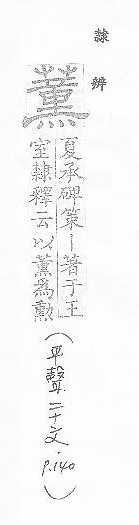 隸辨
薰
夏承碑策｜著于王
室隸釋云以薰為勳
(平聲二十文．P.140)